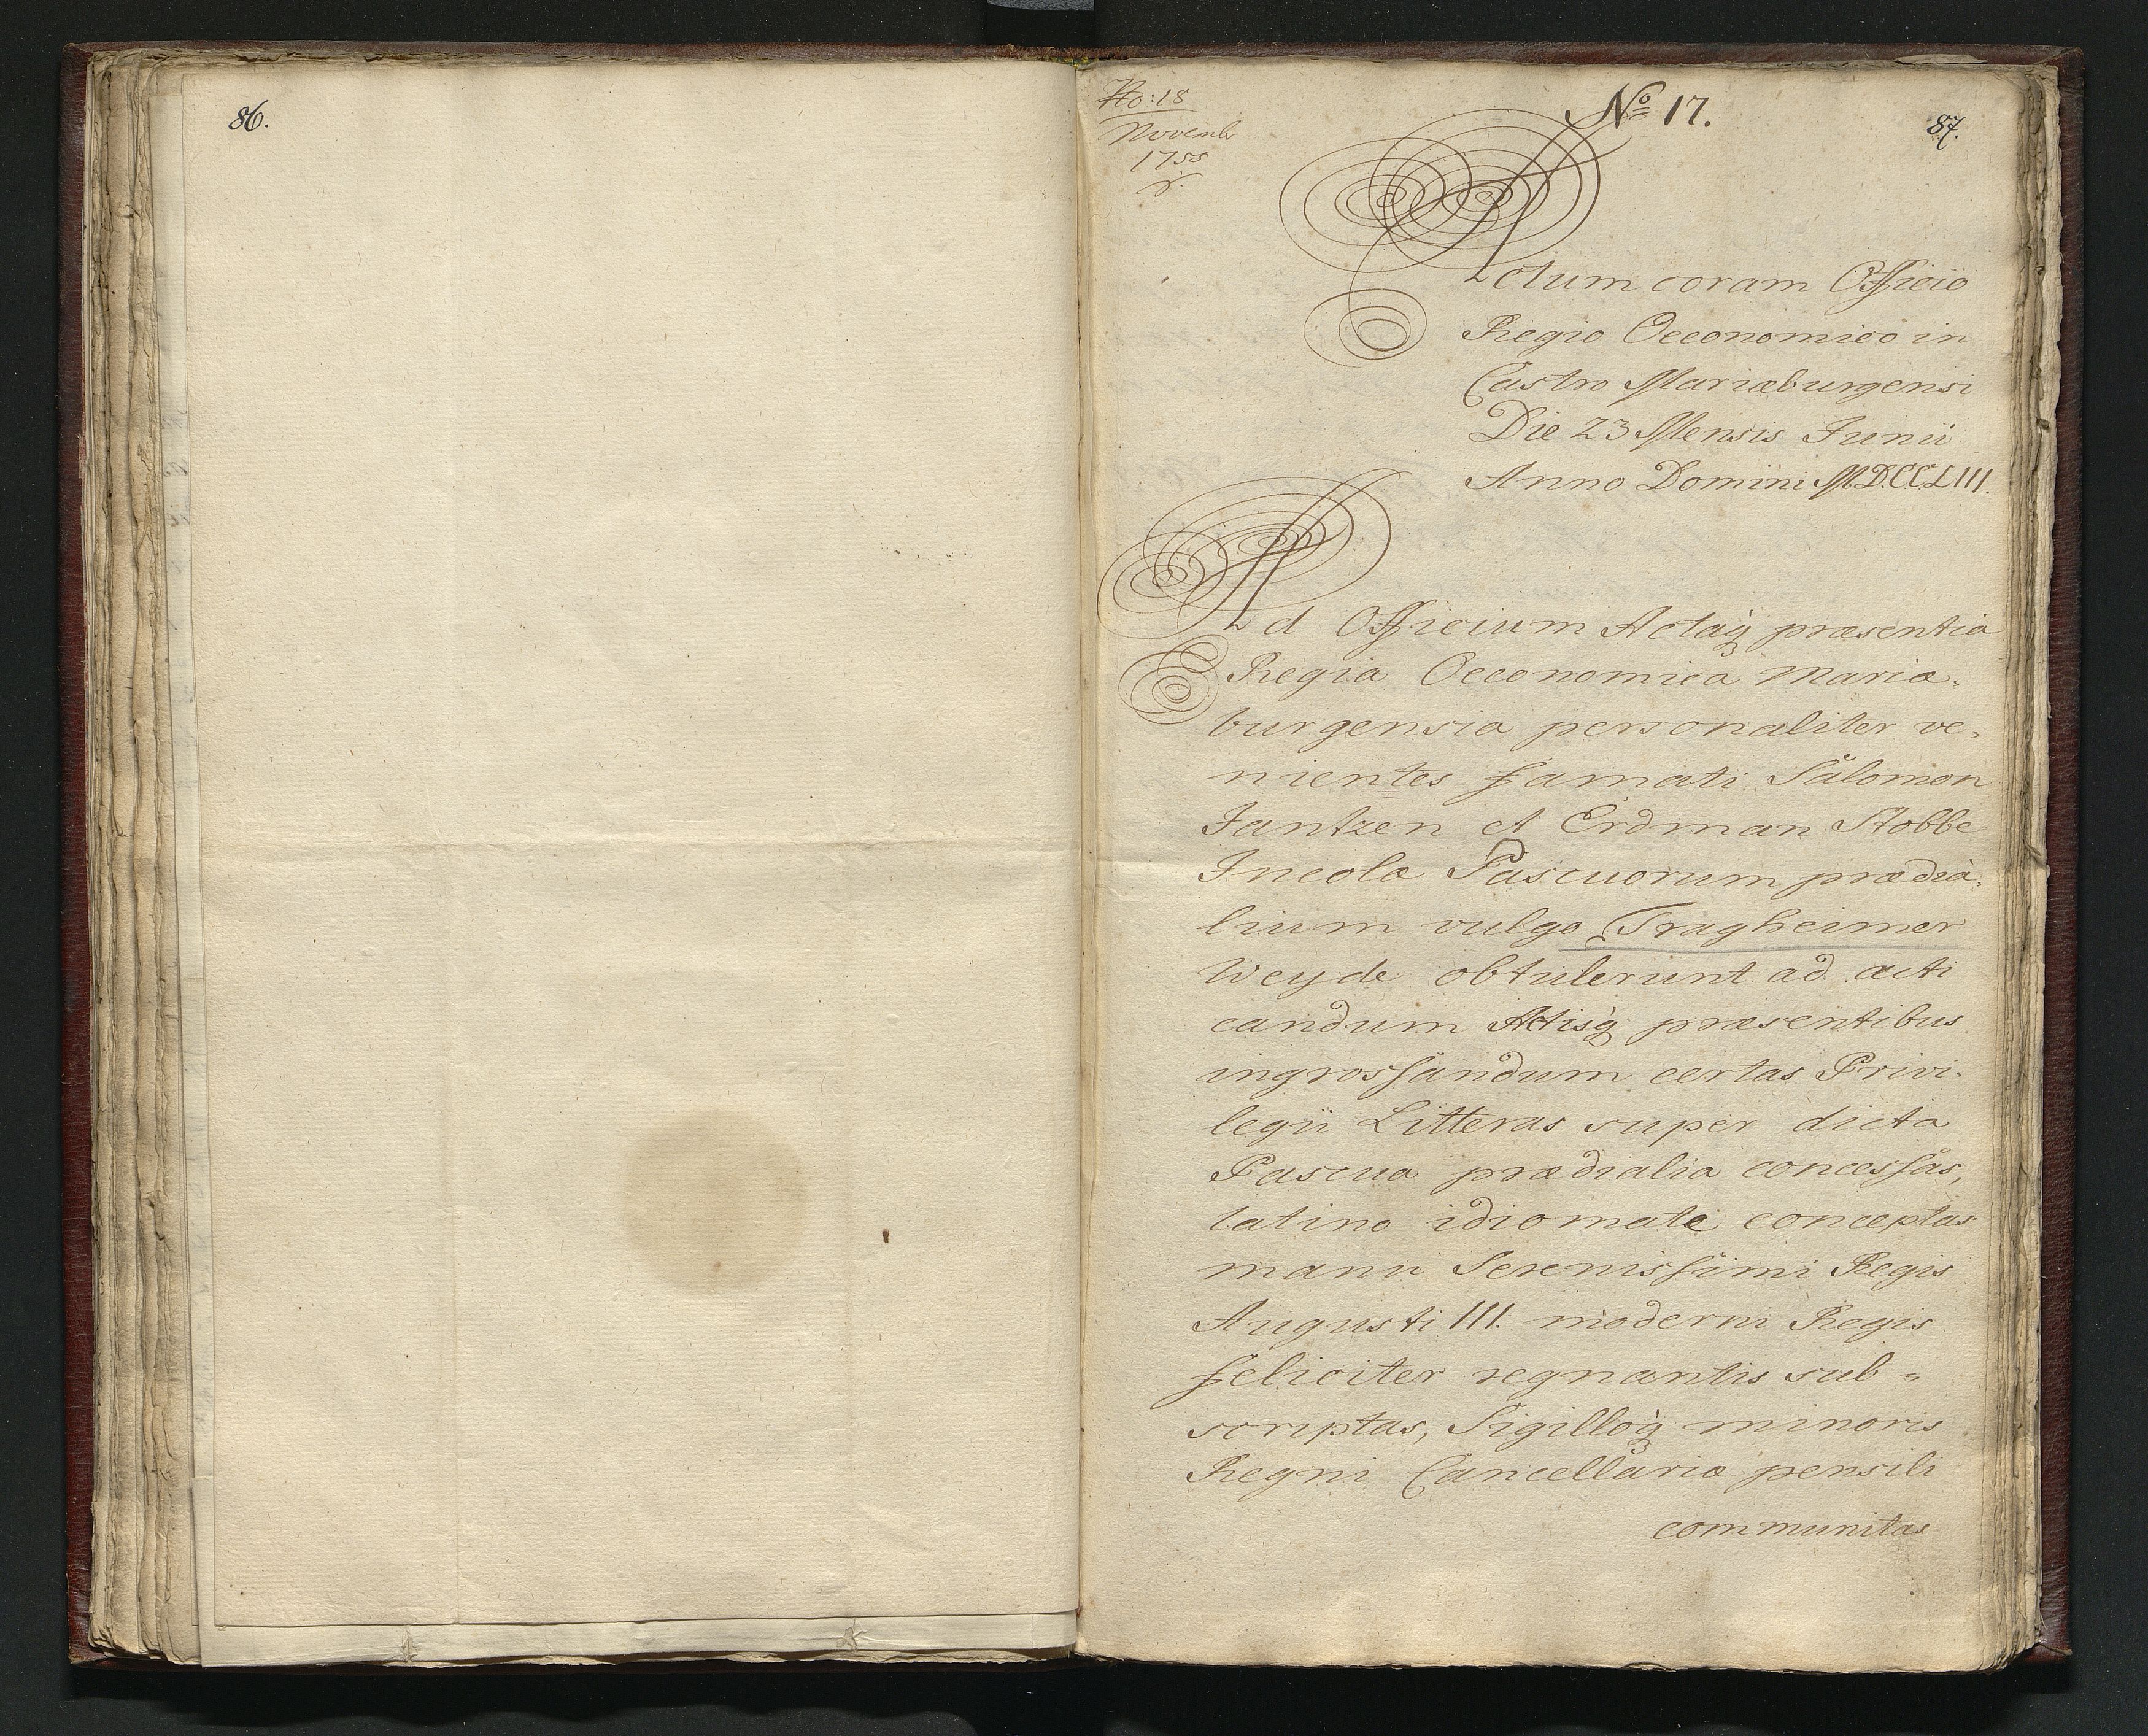 86.
No: 18
Novemb
1755
No 17.
87.
Actum coram Officio
Regio Oeconomico in
Castro Mariæburgensi
Die 23 Mensis Junii
Anno Domini M.D.CC.LIII.
Ad Officium Actaq̀ præsentia
Regia Oeconomica Mariæ-
burgensia personaliter ve-
nientes famati Salomon
Jantzen et Erdman Stobbe
Incolæ Pascuorum prædia-
lium vulgo Tragheimer
Weyde obtulerunt ad acti
candum Actisq̀ præsentibus
ingrossandum certas Privi-
legii Litteras super dicta
Pascua prædialia concessas,
latino idiomate conceptas
manu Serenissimi Regis
Augusti III. moderni Regis
feliciter regnantis sub-
scriptas, Sigilloq̀ minoris
Regni Cancellariæ pensili
communitas